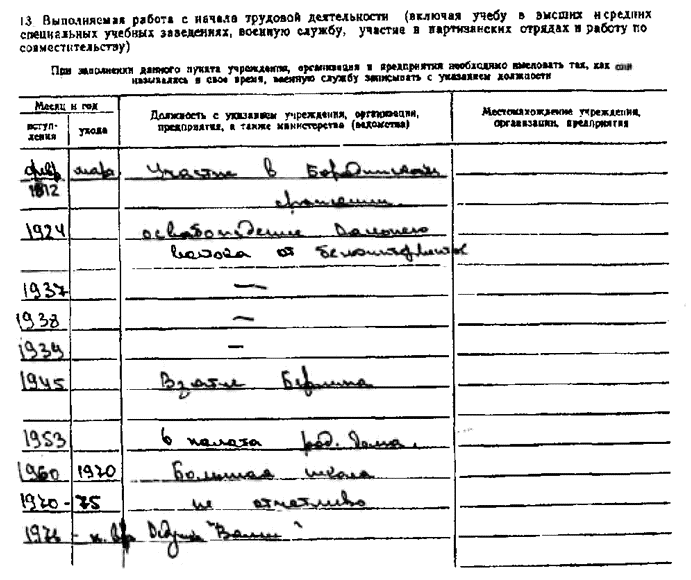 13 Выполняемая работа с начала трудовой деятельности (включая учебу в высших и средних
специальных учебных заведениях, военную службу, участие в партизанских отрядах и работу по
совместительству)
При заполнении данного пункта учреждения, организации и предприятия необходимо именовать так, как они
назывались в свое время, военную службу записывать с указанием должности
Месяц и год
вступ-
ления
ухода
Должность с указанием учреждения, организации,
предприятия, а также министерства (ведомства)
Местонахождение учреждения,
организации, предприятия
февр март Участие в Бородинском
1812 сражении
1924 освобождение Дальнего
востока от
1937 —
1938 —
1939 —
1945 Взятие Берлина
1953 6 палата род. дома.
1960 1970 Большая школа
1970 - 75 не отчетливо
1976 - н. вр.